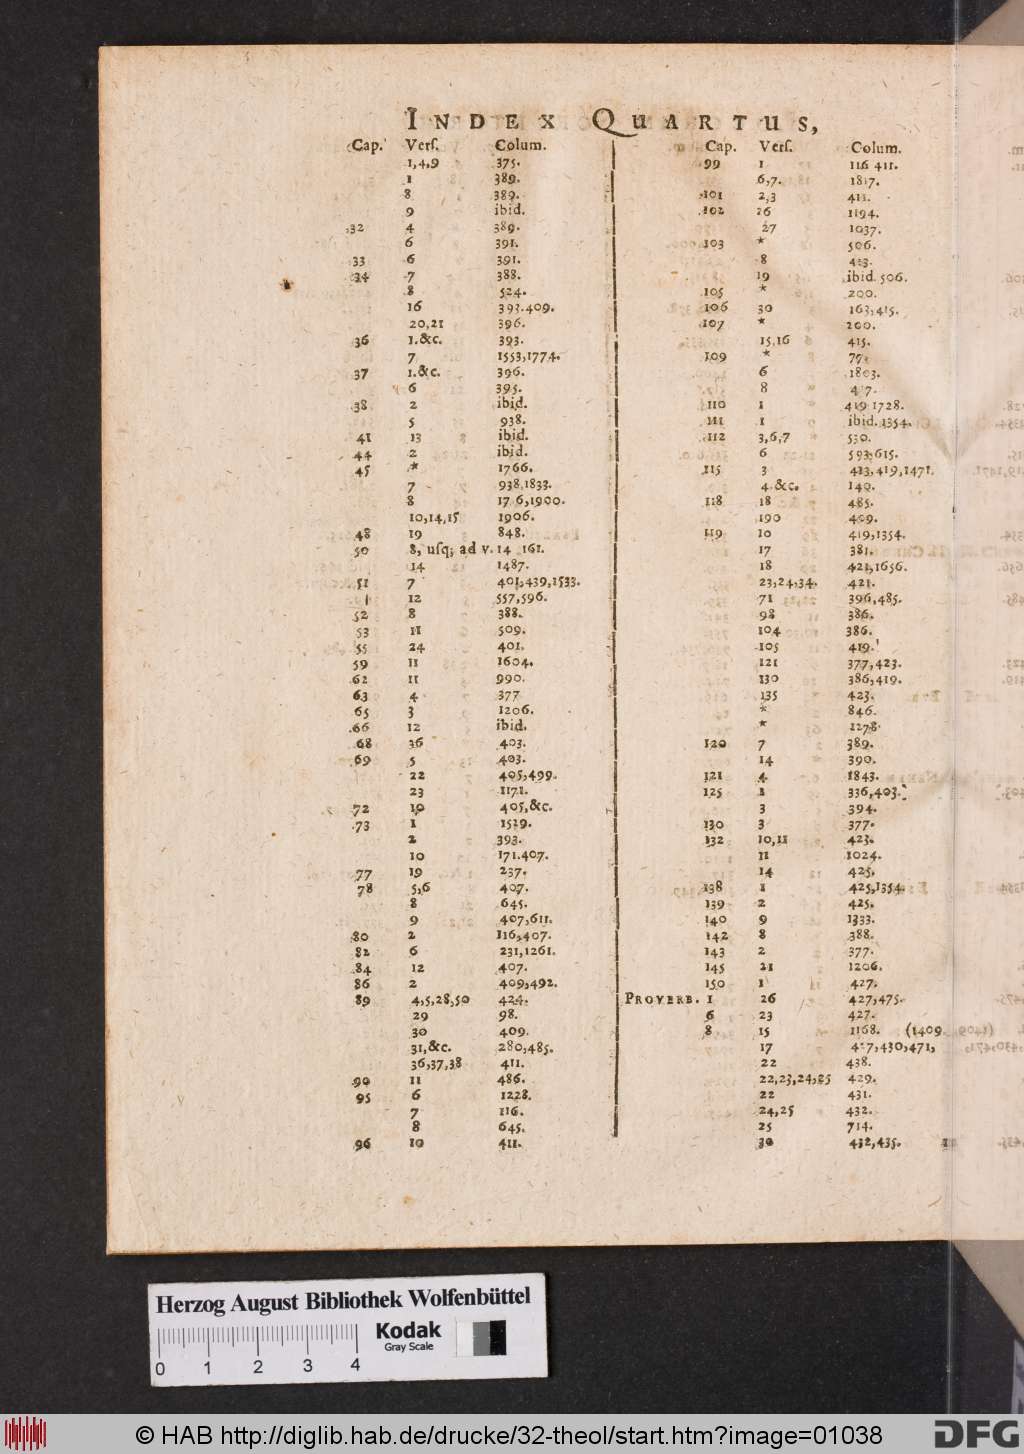 INDEX QUARTUS,
Cap. Vers. Colum.
1,4,9 375.
1 389.
8 389.
9 ibid.
32 4 389.
6 391.
33 6 391.
34 7 388.
8 524.
16 393.409.
20,21 396.
36 1.&c. 393.
7 1553,1774.
37 1.&c. 396.
6 395.
38 2 ibid.
5 938.
41 13 ibid.
44 2 ibid.
45 * 1766.
7 938,1833.
8 17 6,1900.
10,14,15 1906.
48 19 848.
50 8, usq; ad v. 14 161.
14 1487.
51 7 401,439,1533.
12 557,596.
52 8 388.
53 11 509.
55 24 401.
59 11 1604.
62 11 990.
63 4 377
65 3 1206.
66 12 ibid.
68 36 403.
69 5 403.
22 405,499.
23 1171.
72 10 405,&c.
73 1 1529.
2 393.
10 171.407.
77 19 237.
78 5,6 407.
8 645.
9 407,611.
80 2 116,407.
82 6 231,1261.
84 12 407.
86 2 409,492.
89 4,5,28,50 424.
29 98.
30 409.
31,&c. 280,485.
36,37,38 411.
90 11 486.
95 6 1228.
7 116.
8 645.
96 10 411.
Cap. Vers. Colum.
99 1 116 411.
6,7. 1817.
101 2,3 411.
102 26 1194.
27 1037.
103 * 506.
8 413.
19 ibid. 506.
105 * 200.
106 30 163,415.
107 * 200.
15,16 415.
109 * 77.
6 1803.
8 417.
110 1 419 1728.
111 1 ibid. 1354.
112 3,6,7 530.
6 593,615.
115 3 413,419,1471.
4 &c. 140.
118 18 485.
190 409.
119 10 419,1354.
17 381.
18 421,1656.
23,24,34. 421.
71 396,485.
98 386.
104 386.
105 419.
121 377,423.
130 386,419.
135 423.
* 846.
* 1278.
120 7 389.
14 390.
121 4 1843.
125 1 336,403.
3 394.
130 3 377.
132 10,11 423.
11 1024.
14 425.
138 1 425,1354.
139 2 425.
140 9 1333.
142 8 388.
143 2 377.
145 21 1206.
150 1 427.
PROVERB. 1 26 427,475.
6 23 427.
8 15 1168. (1409.
17 427,430,471,
22 438.
22,23,24,25 429.
22 431.
24,25 432.
25 714.
30 432,435.
Herzog August Bibliothek Wolfenbüttel
Kodak
Gray Scale
0 1 2 3 4
© HAB http://diglib.hab.de/drucke/32-theol/start.htm?image=01038
DFG